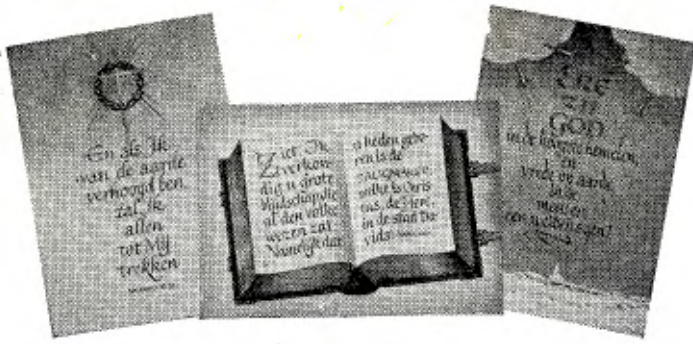 En als Ik
van de aarde
verhoogd ben,
zal Ik
allen
tot Mij
trekken
Ziet, Ik
verkon-
dig u grote
blijdschap, die
al den volke
wezen zal
Namelijk dat
u heden gebo-
ren is de
ZALIGMAKER
welke is Chris-
tus, de Here,
in de stad Da-
vids
ERE
ZIJ
GOD
in de hoogste hemelen,
en
vrede op aarde,
in de
mensen
een welbehagen!